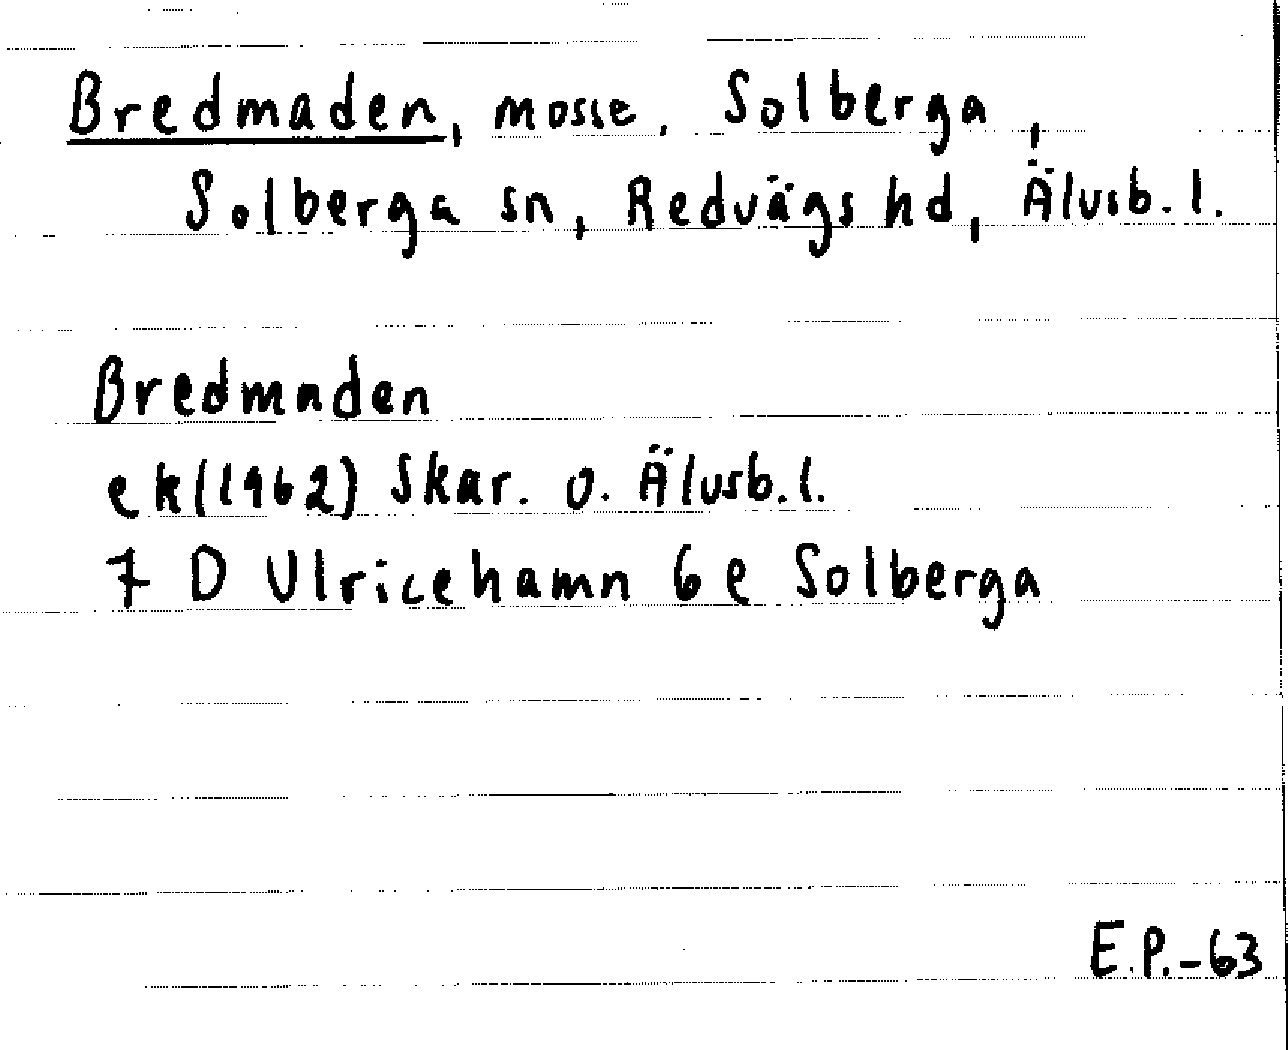 Bredmaden, mosse, Solberga,
Solberga sn, Redvägs hd, Älvsb. l.
Bredmaden
ek (1962) Skar. o. Älvsb. l.
7 D Ulricehamn 6 e Solberga
E.P.-63